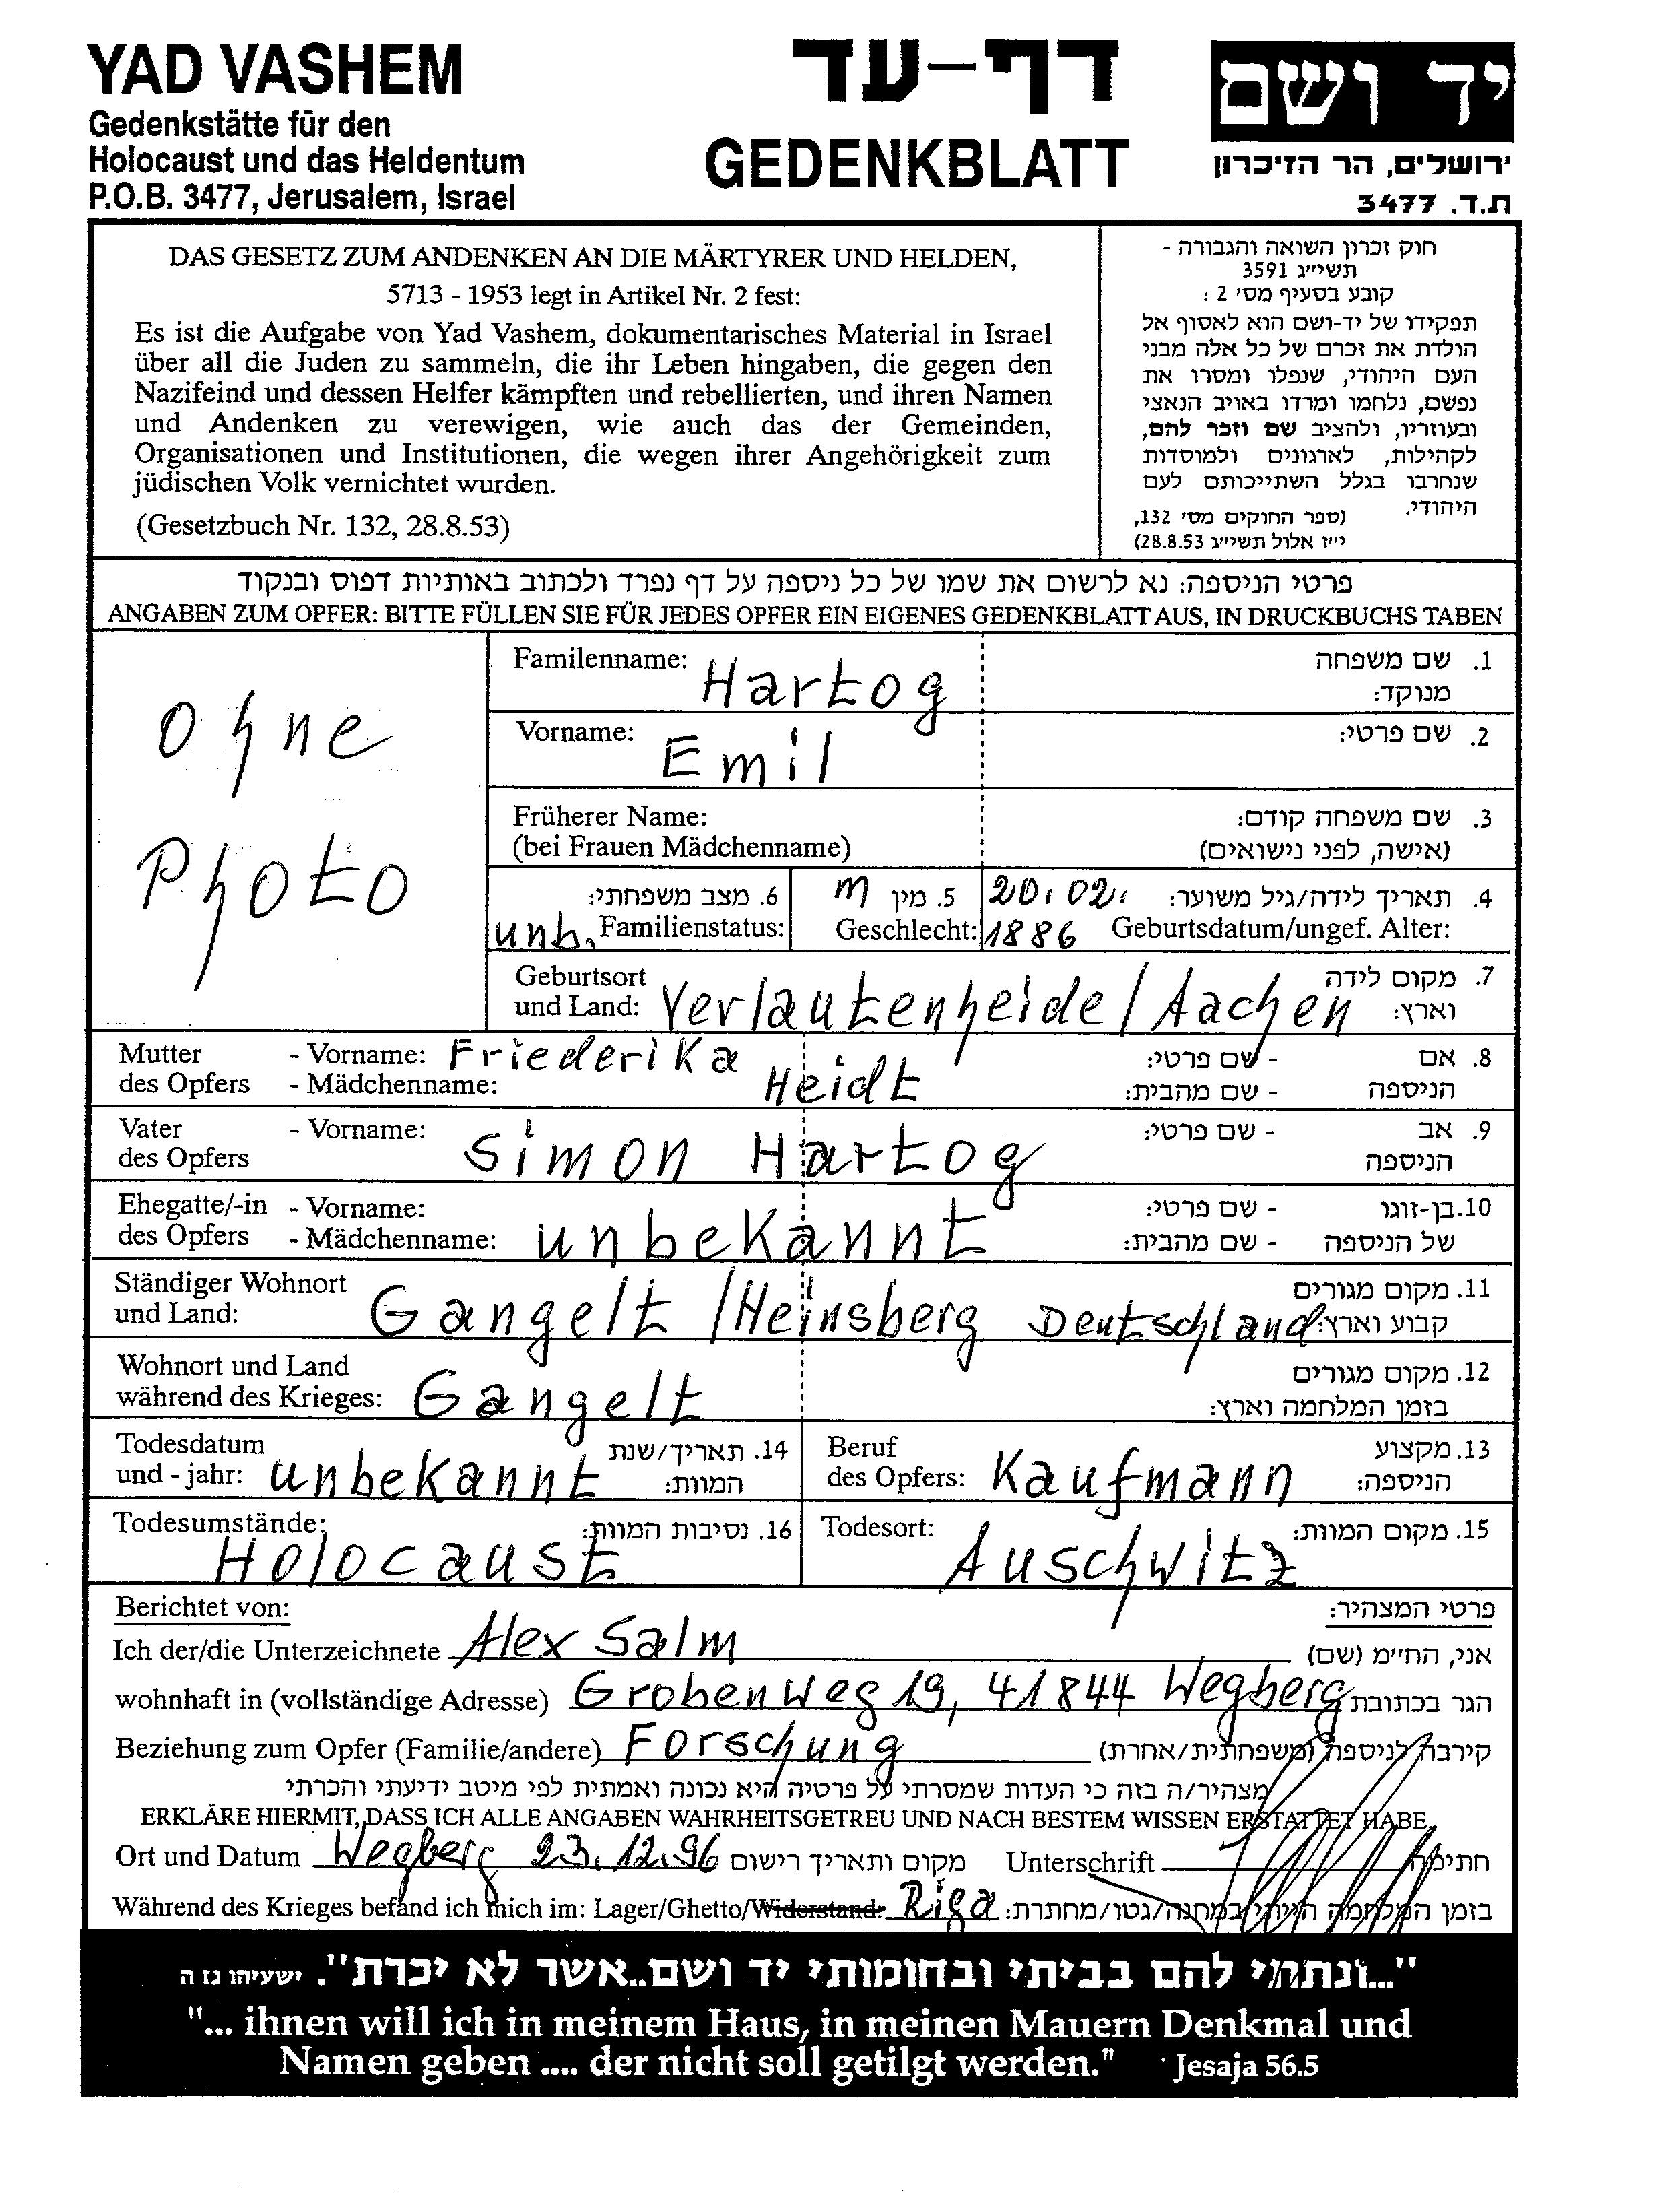 YAD VASHEM
Gedenkstätte für den
Holocaust und das Heldentum
P.O.B. 3477, Jerusalem, Israel
דף-עד
GEDENKBLATT
יד ושם
ירושלים, הר הזיכרון
ת.ד. 3477
DAS GESETZ ZUM ANDENKEN AN DIE MÄRTYRER UND HELDEN,
5713 - 1953 legt in Artikel Nr. 2 fest:
Es ist die Aufgabe von Yad Vashem, dokumentarisches Material in Israel
über all die Juden zu sammeln, die ihr Leben hingaben, die gegen den
Nazifeind und dessen Helfer kämpften und rebellierten, und ihren Namen
und Andenken zu verewigen, wie auch das der Gemeinden,
Organisationen und Institutionen, die wegen ihrer Angehörigkeit zum
jüdischen Volk vernichtet wurden.
(Gesetzbuch Nr. 132, 28.8.53)
חוק זכרון השואה והגבורה -
תשי"ג 3591
קובע בסעיף מס' 2 :
תפקידו של יד-ושם הוא לאסוף אל
הולדת את זכרם של כל אלה מבני
העם היהודי, שנפלו ומסרו את
נפשם, נלחמו ומרדו באויב הנאצי
ובעוזריו, ולהציב שם וזכר להם,
לקהילות, לארגונים ולמוסדות
שנחרבו בגלל השתייכותם לעם
היהודי.
(ספר החוקים מס' 132,
י"ז אלול תשי"ג 28.8.53)
פרטי הניספה: נא לרשום את שמו של כל ניספה על דף נפרד ולכתוב באותיות דפוס ובנקוד
ANGABEN ZUM OPFER: BITTE FÜLLEN SIE FÜR JEDES OPFER EIN EIGENES GEDENKBLATT AUS, IN DRUCKBUCHS TABEN
Ohne
Photo
Familenname: Hartog 1. שם משפחה
מנוקד:
Vorname: Emil 2. שם פרטי:
Früherer Name: 3. שם משפחה קודם:
(bei Frauen Mädchenname) (אישה, לפני נישואים)
6. מצב משפחתי: m 5. מין 20.02. 4. תאריך לידה/גיל משוער:
unb. Familienstatus: Geschlecht: 1886 Geburtsdatum/ungef. Alter:
Geburtsort 7. מקום לידה
und Land: Verlautenheide/Aachen וארץ:
Mutter - Vorname: Friederika - שם פרטי: 8. אם
des Opfers - Mädchenname: Heidt - שם מהבית: הניספה
Vater - Vorname: Simon Hartog - שם פרטי: 9. אב
des Opfers הניספה
Ehegatte/-in - Vorname: - שם פרטי: 10. בן-זוגו
des Opfers - Mädchenname: unbekannt - שם מהבית: של הניספה
Ständiger Wohnort 11. מקום מגורים
und Land: Gangelt /Heinsberg Deutschland קבוע וארץ:
Wohnort und Land 12. מקום מגורים
während des Krieges: Gangelt בזמן המלחמה וארץ:
Todesdatum 14. תאריך/שנת Beruf 13. מקצוע
und - jahr: unbekannt המוות: des Opfers: Kaufmann הניספה:
Todesumstände: 16. נסיבות המוות: Todesort: 15. מקום המוות:
Holocaust Auschwitz
Berichtet von: פרטי המצהיר:
Ich der/die Unterzeichnete Alex Salm אני, החי"מ (שם)
wohnhaft in (vollständige Adresse) Grobenweg 19, 41844 Wegberg הגר בכתובת
Beziehung zum Opfer (Familie/andere) Forschung קירבה לניספה (משפחתית/אחרת)
מצהיר/ה בזה כי העדות שמסרתי על פרטיה היא נכונה ואמתית לפי מיטב ידיעתי והכרתי
ERKLÄRE HIERMIT, DASS ICH ALLE ANGABEN WAHRHEITSGETREU UND NACH BESTEM WISSEN ERSTATTET HABE.
Ort und Datum Wegberg 23.12.96 מקום ותאריך רישום Unterschrift חתימה
Während des Krieges befand ich mich im: Lager/Ghetto/Widerstand: Riga בזמן המלחמה הייתי במחנה/גטו/מחתרת:
"...ונתתי להם בביתי ובחומותי יד ושם..אשר לא יכרת". ישעיהו נז ה
"... ihnen will ich in meinem Haus, in meinen Mauern Denkmal und
Namen geben .... der nicht soll getilgt werden." Jesaja 56.5